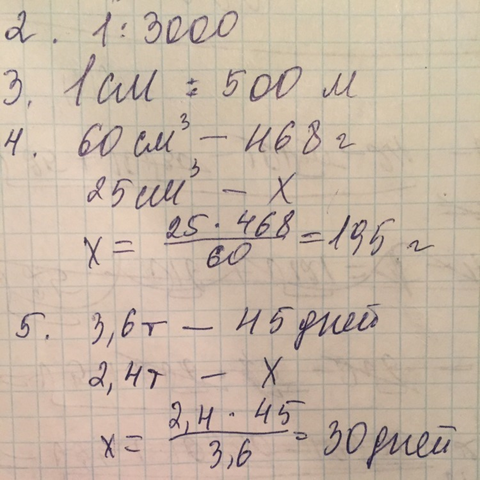 2. 1:3000
3. 1 см : 500 м
4. 60 см³ — 468 г
25 см³ — х
х = 25 · 468 / 60 = 195 г
5. 3,6 т — 45 дней
2,4 т — х
х = 2,4 · 45 / 3,6 = 30 дней